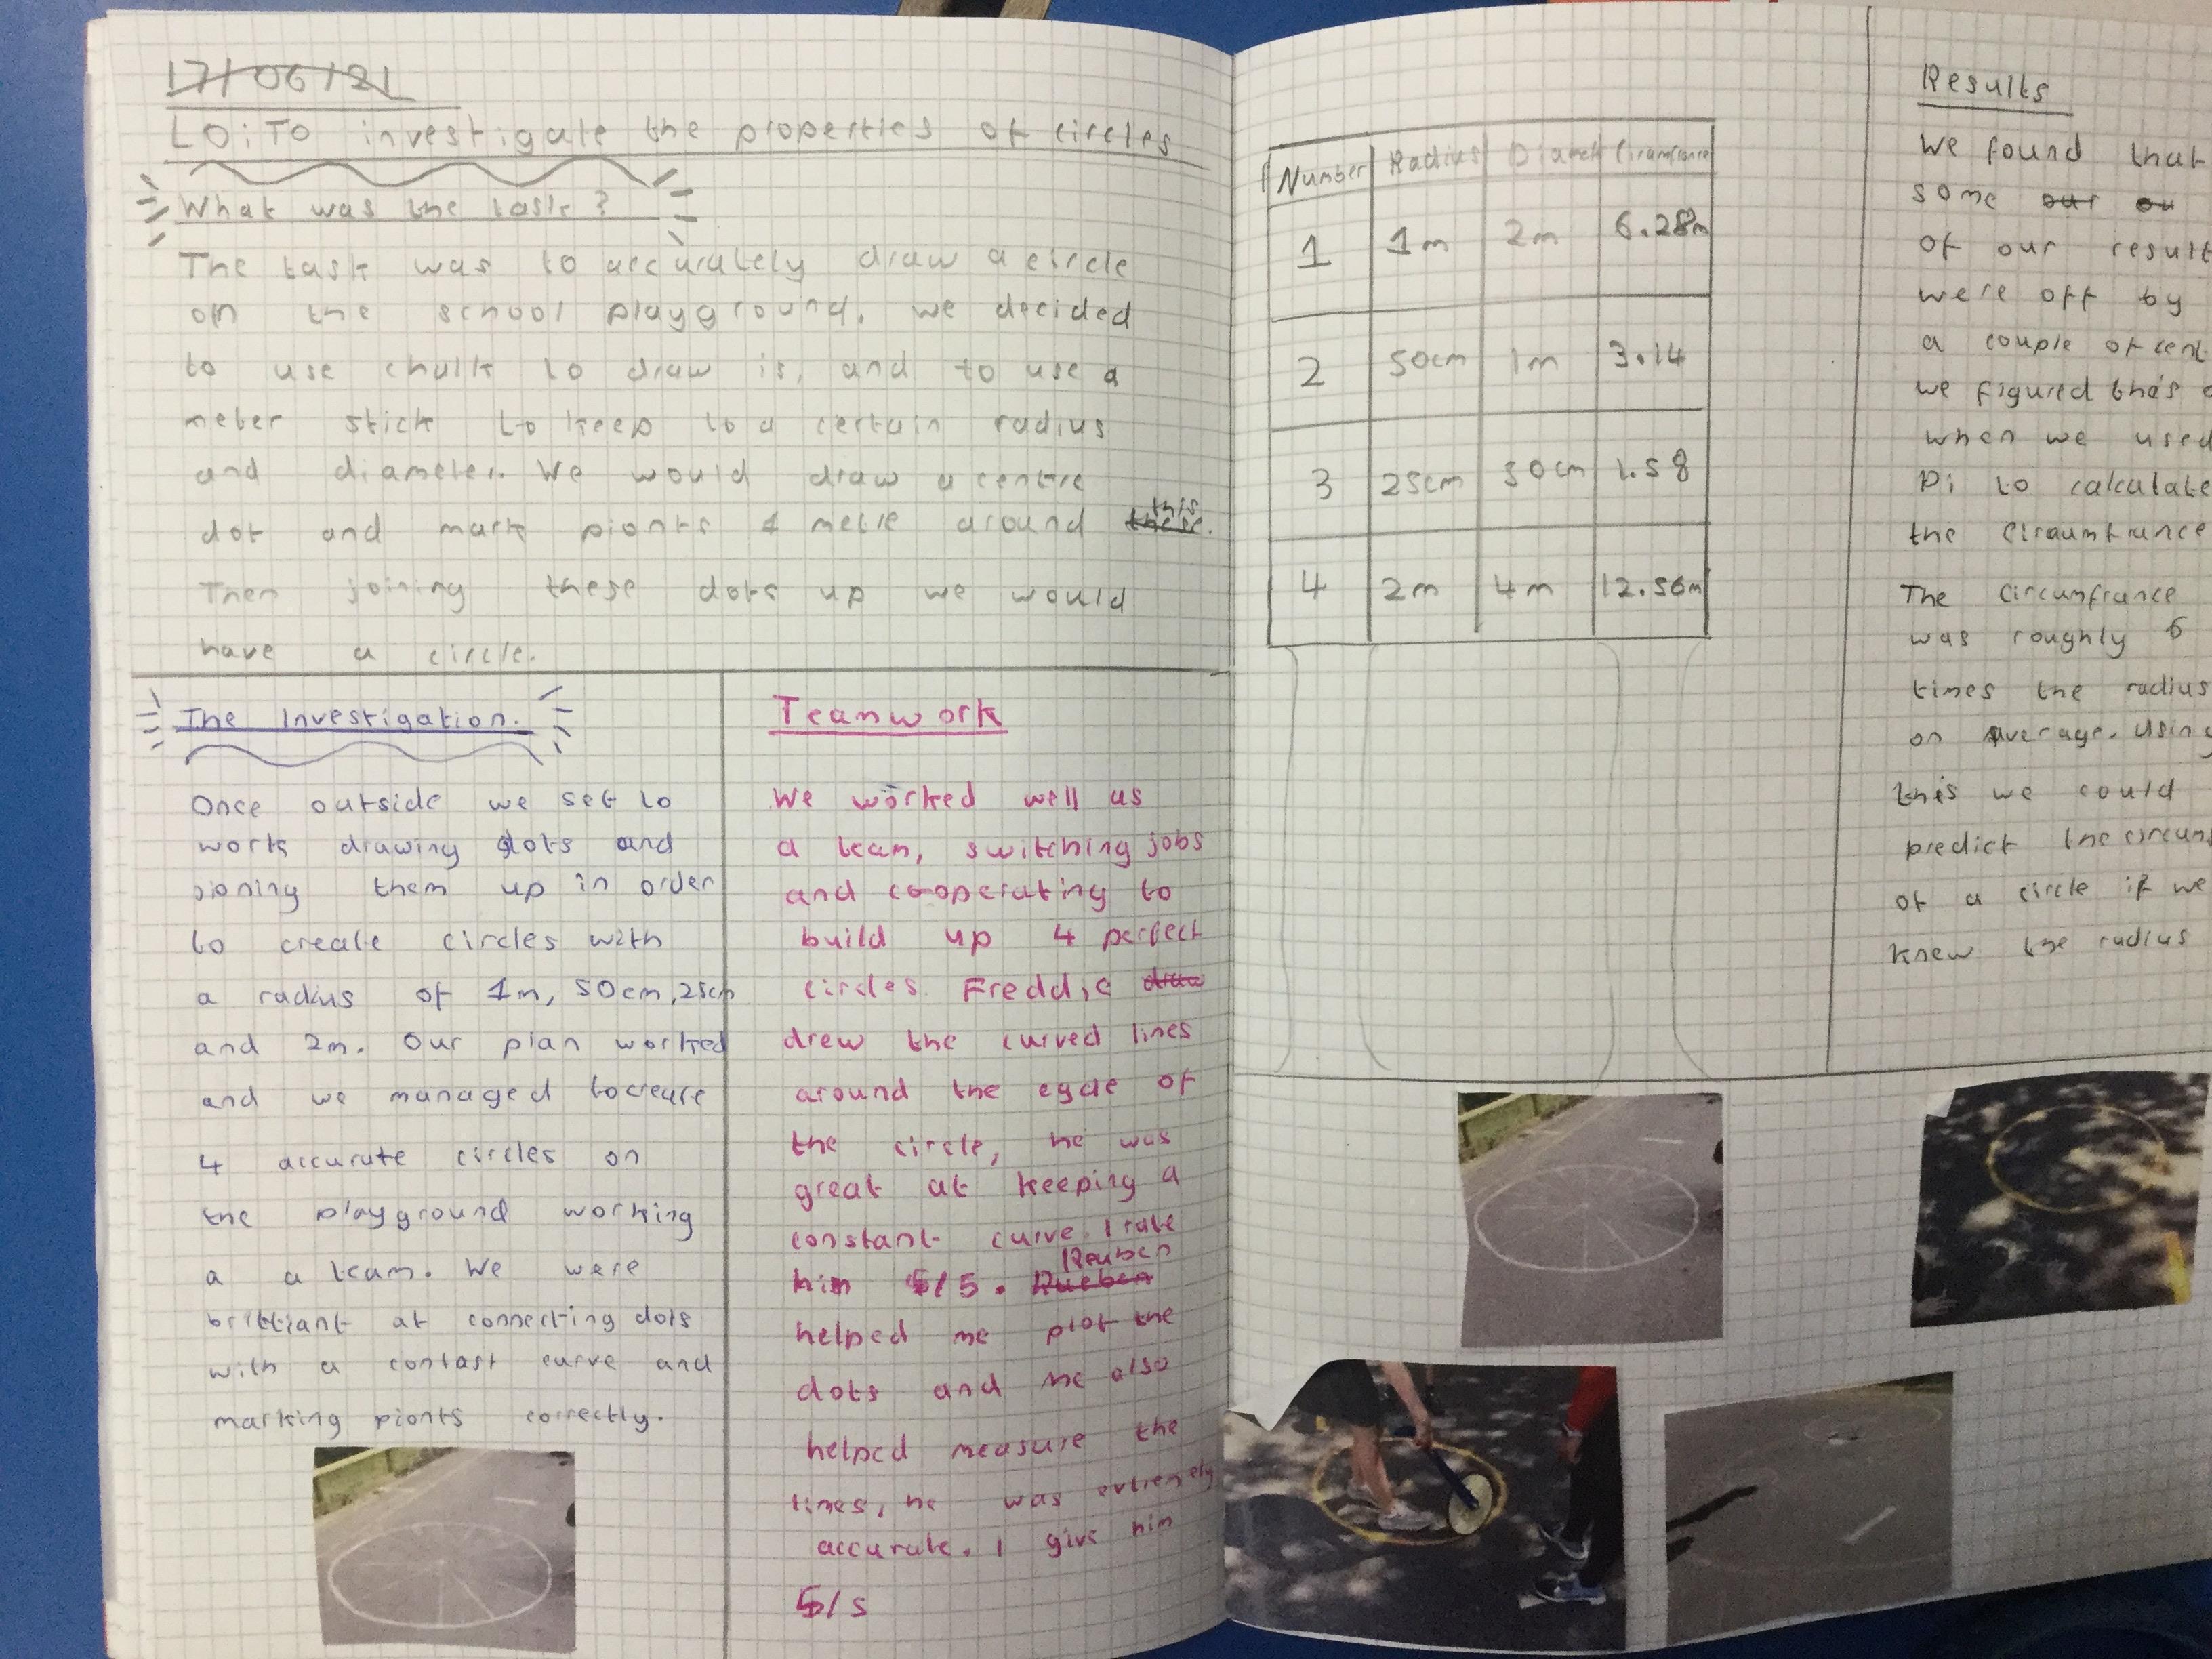 17/06/21
LO: To investigate the properties of circles
What was the task?
The task was to accurately draw a circle
on the school playground. we decided
to use chalk to draw is, and to use a
meter stick to keep to a certain radius
and diameter. We would draw a centre
dot and mark pionts 1 metre around these. this
Then joining these dots up we would
have a circle.
The Investigation.
Once outside we set to
work drawing dots and
jioning them up in order
to create circles with
a radius of 1m, 50cm, 25cm
and 2m. Our plan worked
and we managed to create
4 accurate circles on
the playground working
a a team. We were
brilliant at connecting dots
with a contast curve and
marking pionts correctly.
Teamwork
We worked well as
a team, switching jobs
and co-operating to
build up 4 perfect
circles. Freddie draw
drew the curved lines
around the egde of
the circle, he was
great at keeping a
constant curve. I rate
him 5/5. Rueben Reuben
helped me plot the
dots and he also
helped measure the
lines, he was extremely
accurate. I give him
5/5
Number Radius Diamet Circumfrance
1 1m 2m 6.28m
2 50cm 1m 3.14
3 25cm 50cm 1.58
4 2m 4m 12.56m
Results
We found that
some our ou
of our result
were off by
a couple of cent
we figured this
when we used
Pi to calculate
the Circumfrance
The Circumfrance
was roughly 6
times the radius
on average. Using
this we could
predict the circum
of a circle if we
knew the radius